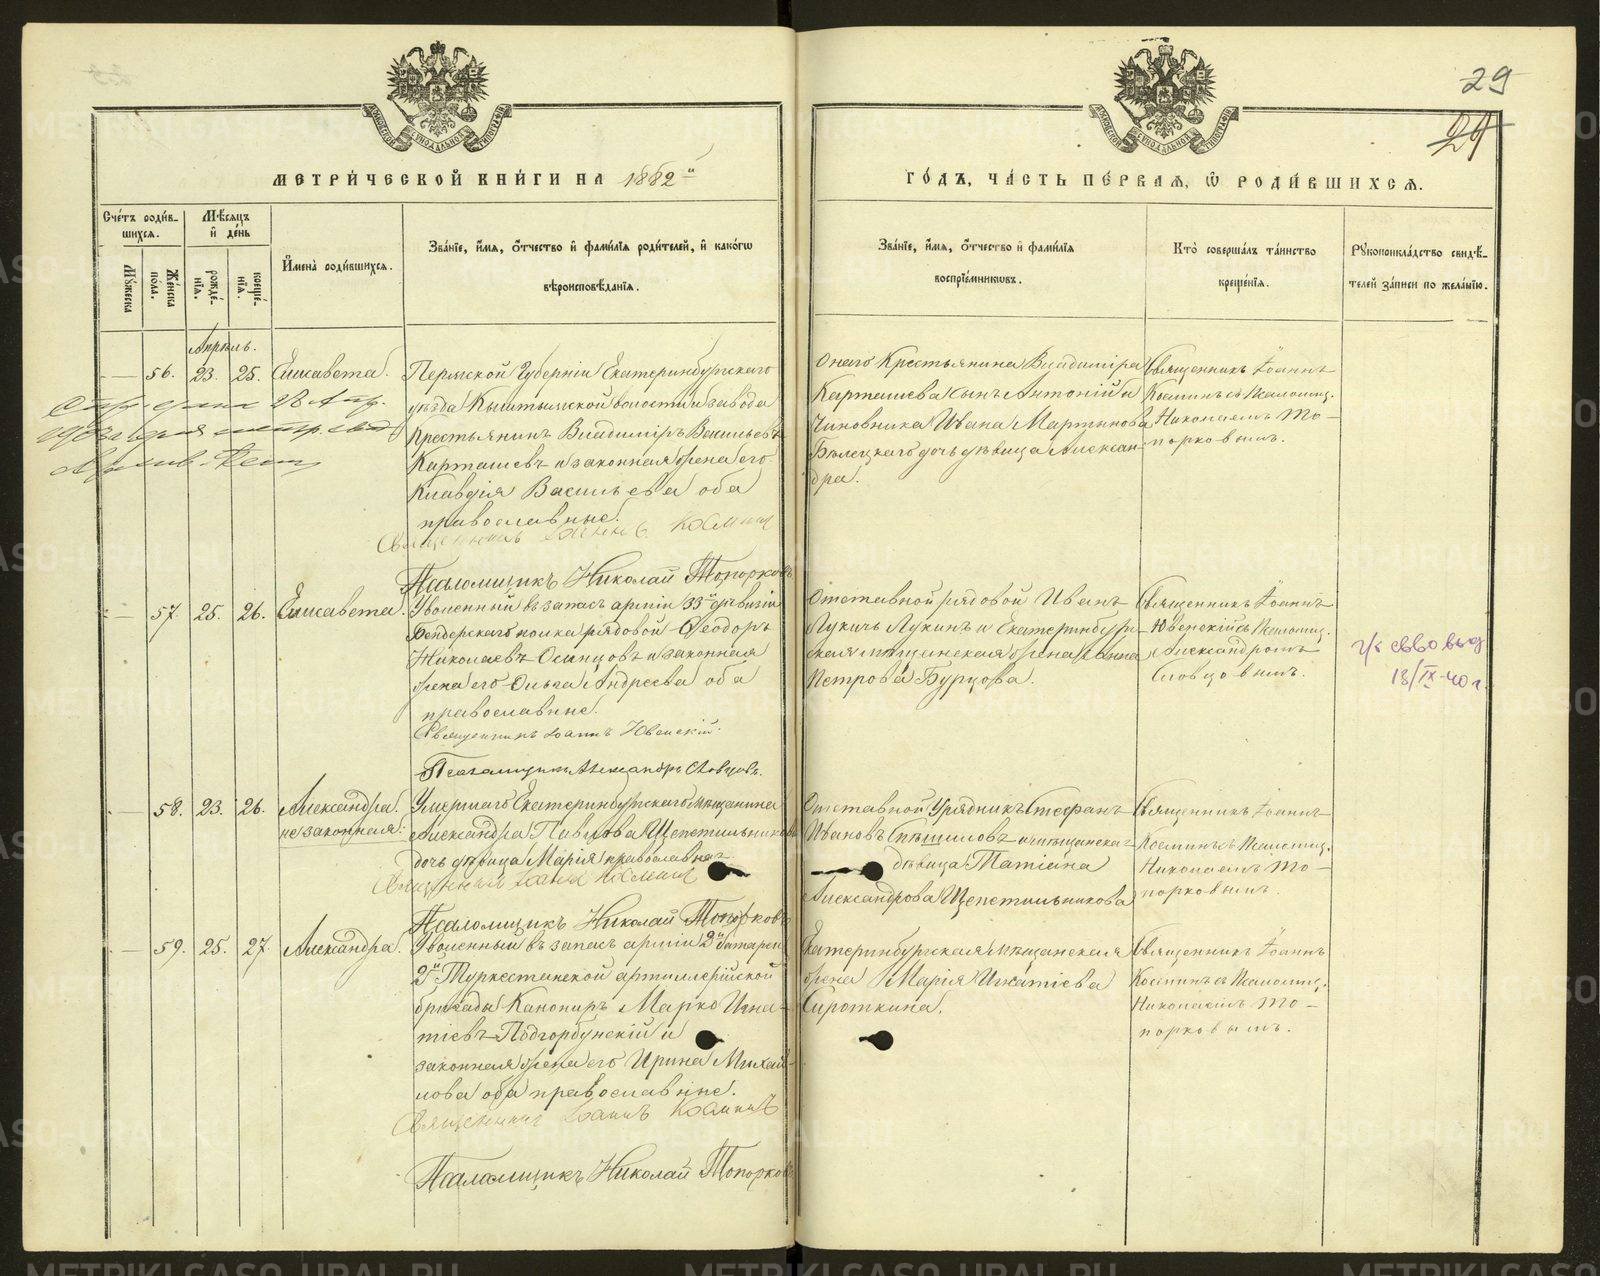 29
29
МОСКОВСКОЙ СѴНОДАЛЬНОЙ ТИПОГРАФІИ
МОСКОВСКОЙ СѴНОДАЛЬНОЙ ТИПОГРАФІИ
МЕТРИ́ЧЕСКОЙ КНИ́ГИ НА 1882й
ГО́ДЪ, ЧА́СТЬ ПЕ́РВАЯ, Ѡ РОДИ́ВШИХСЯ.
Сче́тъ роди́в-
шихся.
Му́жеска
Же́нска
по́ла.
Мѣ́сяцъ
и де́нь
рожде́-
нія.
креще́-
нія.
Имена̀ роди́вшихся.
Зва́нїе, и́мя, о́тчество и фами́лїя роди́телей, и како́гѡ
вѣроисповѣ́данїя.
Зва́нїе, и́мя, о́тчество и фами́лїя
воспрїе́мникѡвъ.
Кто̀ соверша́лъ та́инство
креще́нїя.
Рꙋкоприкла́дство свидѣ́-
телей за́писи по жела́нїю.
Апрѣль.
— 56. 23. 25. Елисавета.
Пермской Губерніи Екатеринбургскаго
уѣзда Кыштымской волости и завода
крестьянинъ Владиміръ Васильевъ
Карташевъ и законная жена его
Клавдія Васильева оба
православные.
Священникъ Іоаннъ Косминъ
Псаломщикъ Николай Топорковъ
Онаго Крестьянина Владиміра
Карташева сынъ Антоній и
Чиновника Ивана Мартинова
Бѣлецкаго дочь дѣвица Алексан-
дра.
Священникъ Іоаннъ
Косминъ съ Псаломщ.
Николаемъ То-
порковымъ.
— 57. 25. 26. Елисавета.
Уволенный въ запасъ арміи 33й дивизіи
Бендерскаго полка рядовой Ѳеодоръ
Николаевъ Осинцовъ и законная
жена его Ольга Андреева оба
православные.
Священникъ Іоаннъ Ювенскій.
Псаломщикъ Александръ Словцовъ.
Отставной рядовой Иванъ
Лукичъ Лукинъ и Екатеринбург-
ская мѣщанская жена Анна
Петрова Бурцова.
Священникъ Іоаннъ
Ювенскій съ Псаломщ.
Александромъ
Словцовымъ.
18/IX-40 г.
— 58. 23. 26. Александра.
незаконная.
Умершаго Екатеринбургскаго мѣщанина
Александра Павлова Щепетильникова
дочь дѣвица Марія православная
Священникъ Іоаннъ Косминъ
Псаломщикъ Николай Топорковъ
Отставной Урядникъ Стефанъ
Ивановъ Спѣшиловъ и мѣщанская
дѣвица Татіана
Александрова Щепетильникова
Священникъ Іоаннъ
Косминъ съ Псаломщ.
Николаемъ То-
порковымъ.
— 59. 25. 27. Александра.
Уволенный въ запасъ арміи 2й батареи
2й Туркестанской артиллерійской
бригады Канониръ Марко Игна-
тіевъ Подгорбунскій и
законная жена его Ирина Михай-
лова оба православные.
Священникъ Іоаннъ Косминъ
Псаломщикъ Николай Топорковъ
Екатеринбургская мѣщанская
жена Марія Игнатіева
Сироткина.
Священникъ Іоаннъ
Косминъ съ Псаломщ.
Николаемъ То-
порковымъ.
METRIKI.GASO-URAL.RU